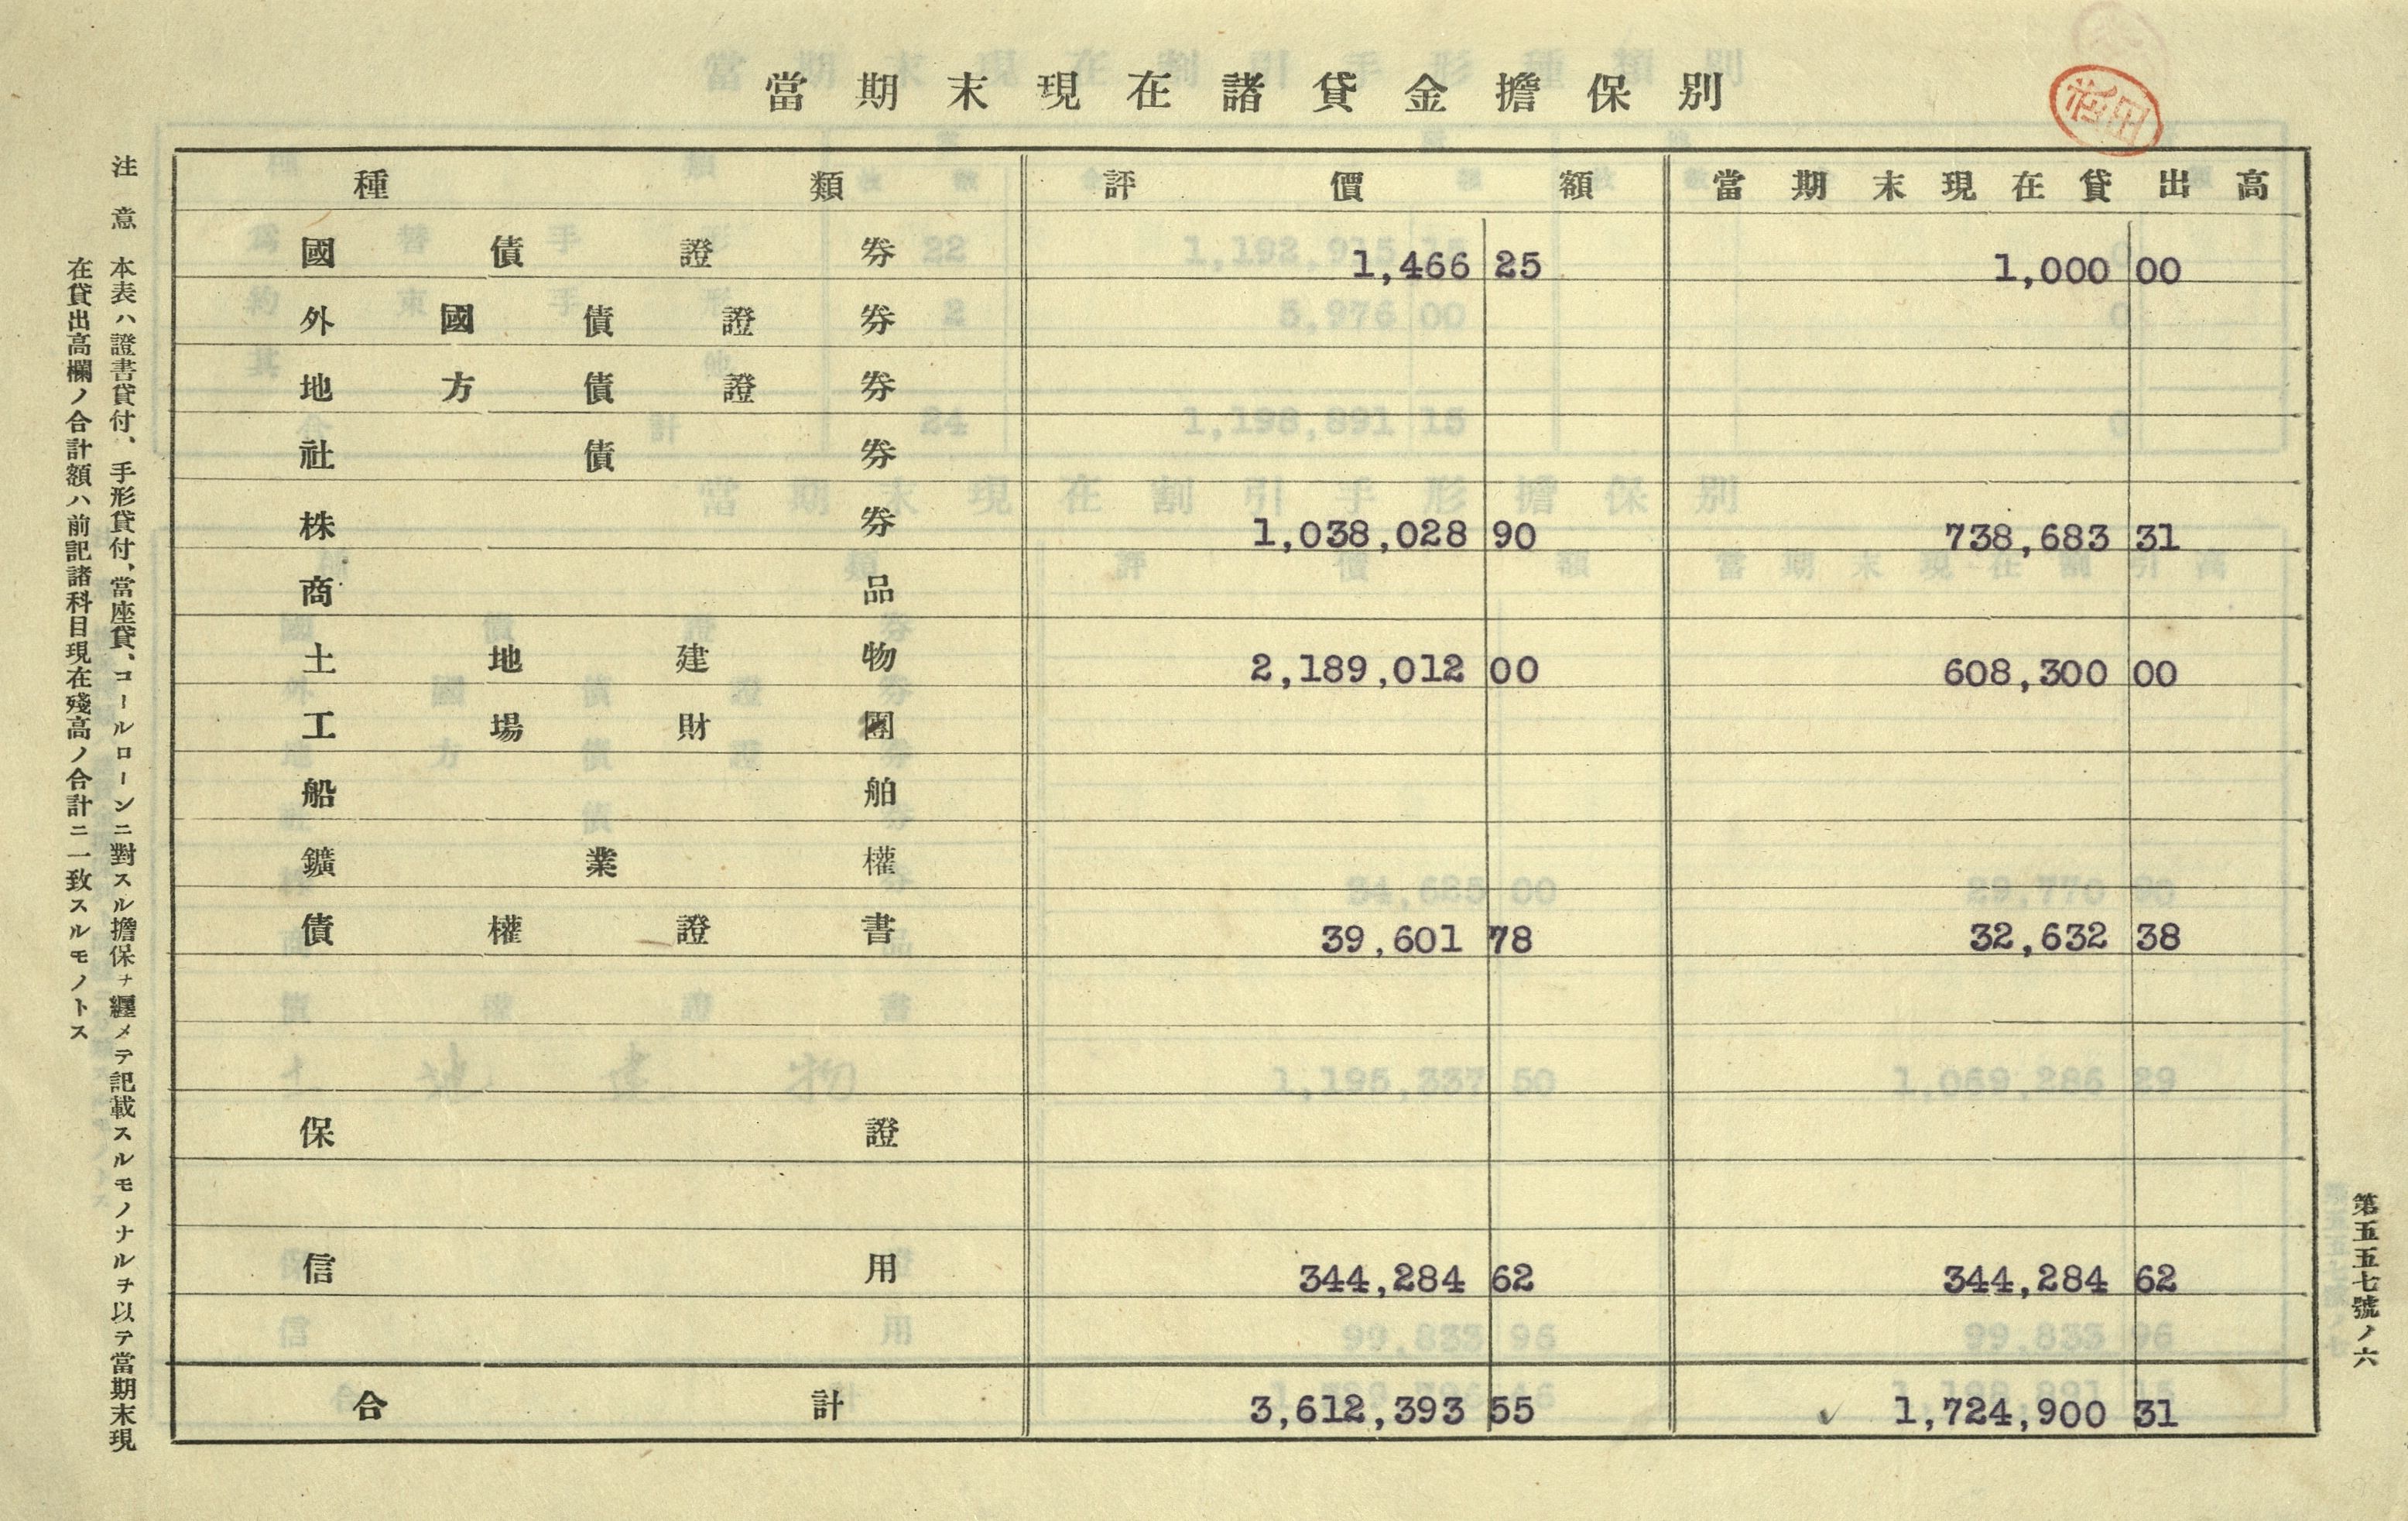 當期末現在諸貸金擔保別
種類 評價額 當期末現在貸出高
國債證券 1,466 25 1,000 00
外國債證券
地方債證券
社債券
株券 1,038,028 90 738,683 31
商品
土地建物 2,189,012 00 608,300 00
工場財團
船舶
鑛業權
債權證書 39,601 78 32,632 38
保證
信用 344,284 62 344,284 62
合計 3,612,393 55 1,724,900 31
第五五七號ノ六
注意 本表ハ證書貸付、手形貸付、當座貸、コールローンニ對スル擔保ヲ纒メテ記載スルモノナルヲ以テ當期末現
在貸出高欄ノ合計額ハ前記諸科目現在殘高ノ合計ニ一致スルモノトス